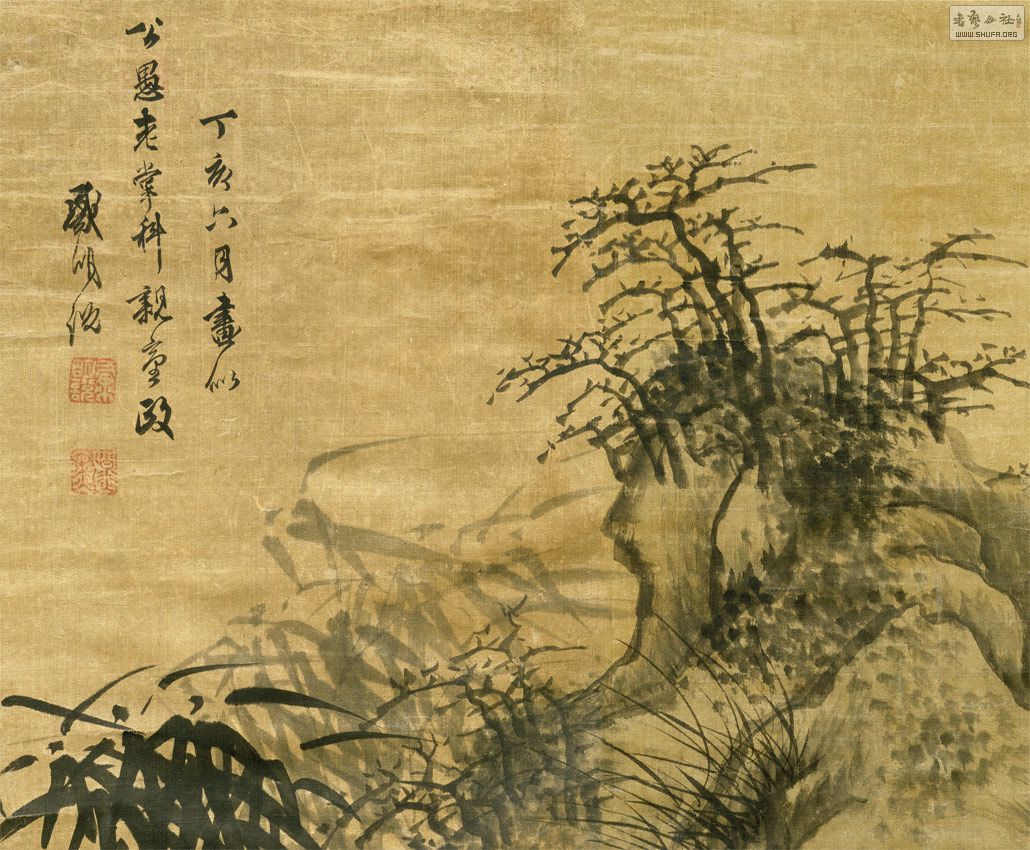 丁亥六月畫似
公愚老掌科親臺政
戴明說
書藝公社
WWW.SHUFA.ORG